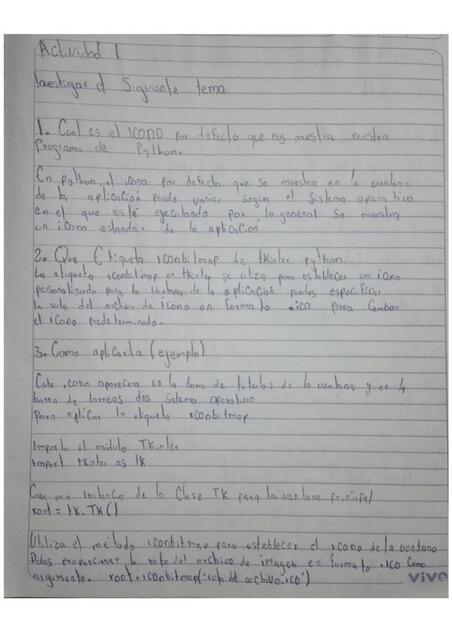 Actividad 1
Investigar el Siguiente tema
1. Cual es el ICONO por defecto que nos muestra nuestro
Programa de Python.
En python, el icono por defecto que se muestra en la ventana
de la aplicación puede variar según el sistema operativo
en el que esté ejecutando por lo general se muestra
un icono estandar de la aplicación
2. Que Etiqueta iconbitmap de tkinter python.
La etiqueta iconbitmap en tkinter se utiliza para establecer un icono
personalizado para la ventana de la aplicación puedes especificar
la ruta del archivo de icono en formato .ico para cambiar
el icono predeterminado.
3. Como aplicarla (ejemplo)
Este icono aparecera en la barra de titulos de la ventana y en la
barra de tareas del sistema operativo
Para aplicar la etiqueta iconbitmap
Importa el módulo TKinter
import tkinter as tk
Crea una instancia de la Clase TK para la ventana principal
root = tk.TK()
Utiliza el método iconbitmap para establecer el icono de la ventana
Debes proporcionar la ruta del archivo de imagen en formato .ico como
argumento. root.iconbitmap('ruta del archivo.ico')
vivo